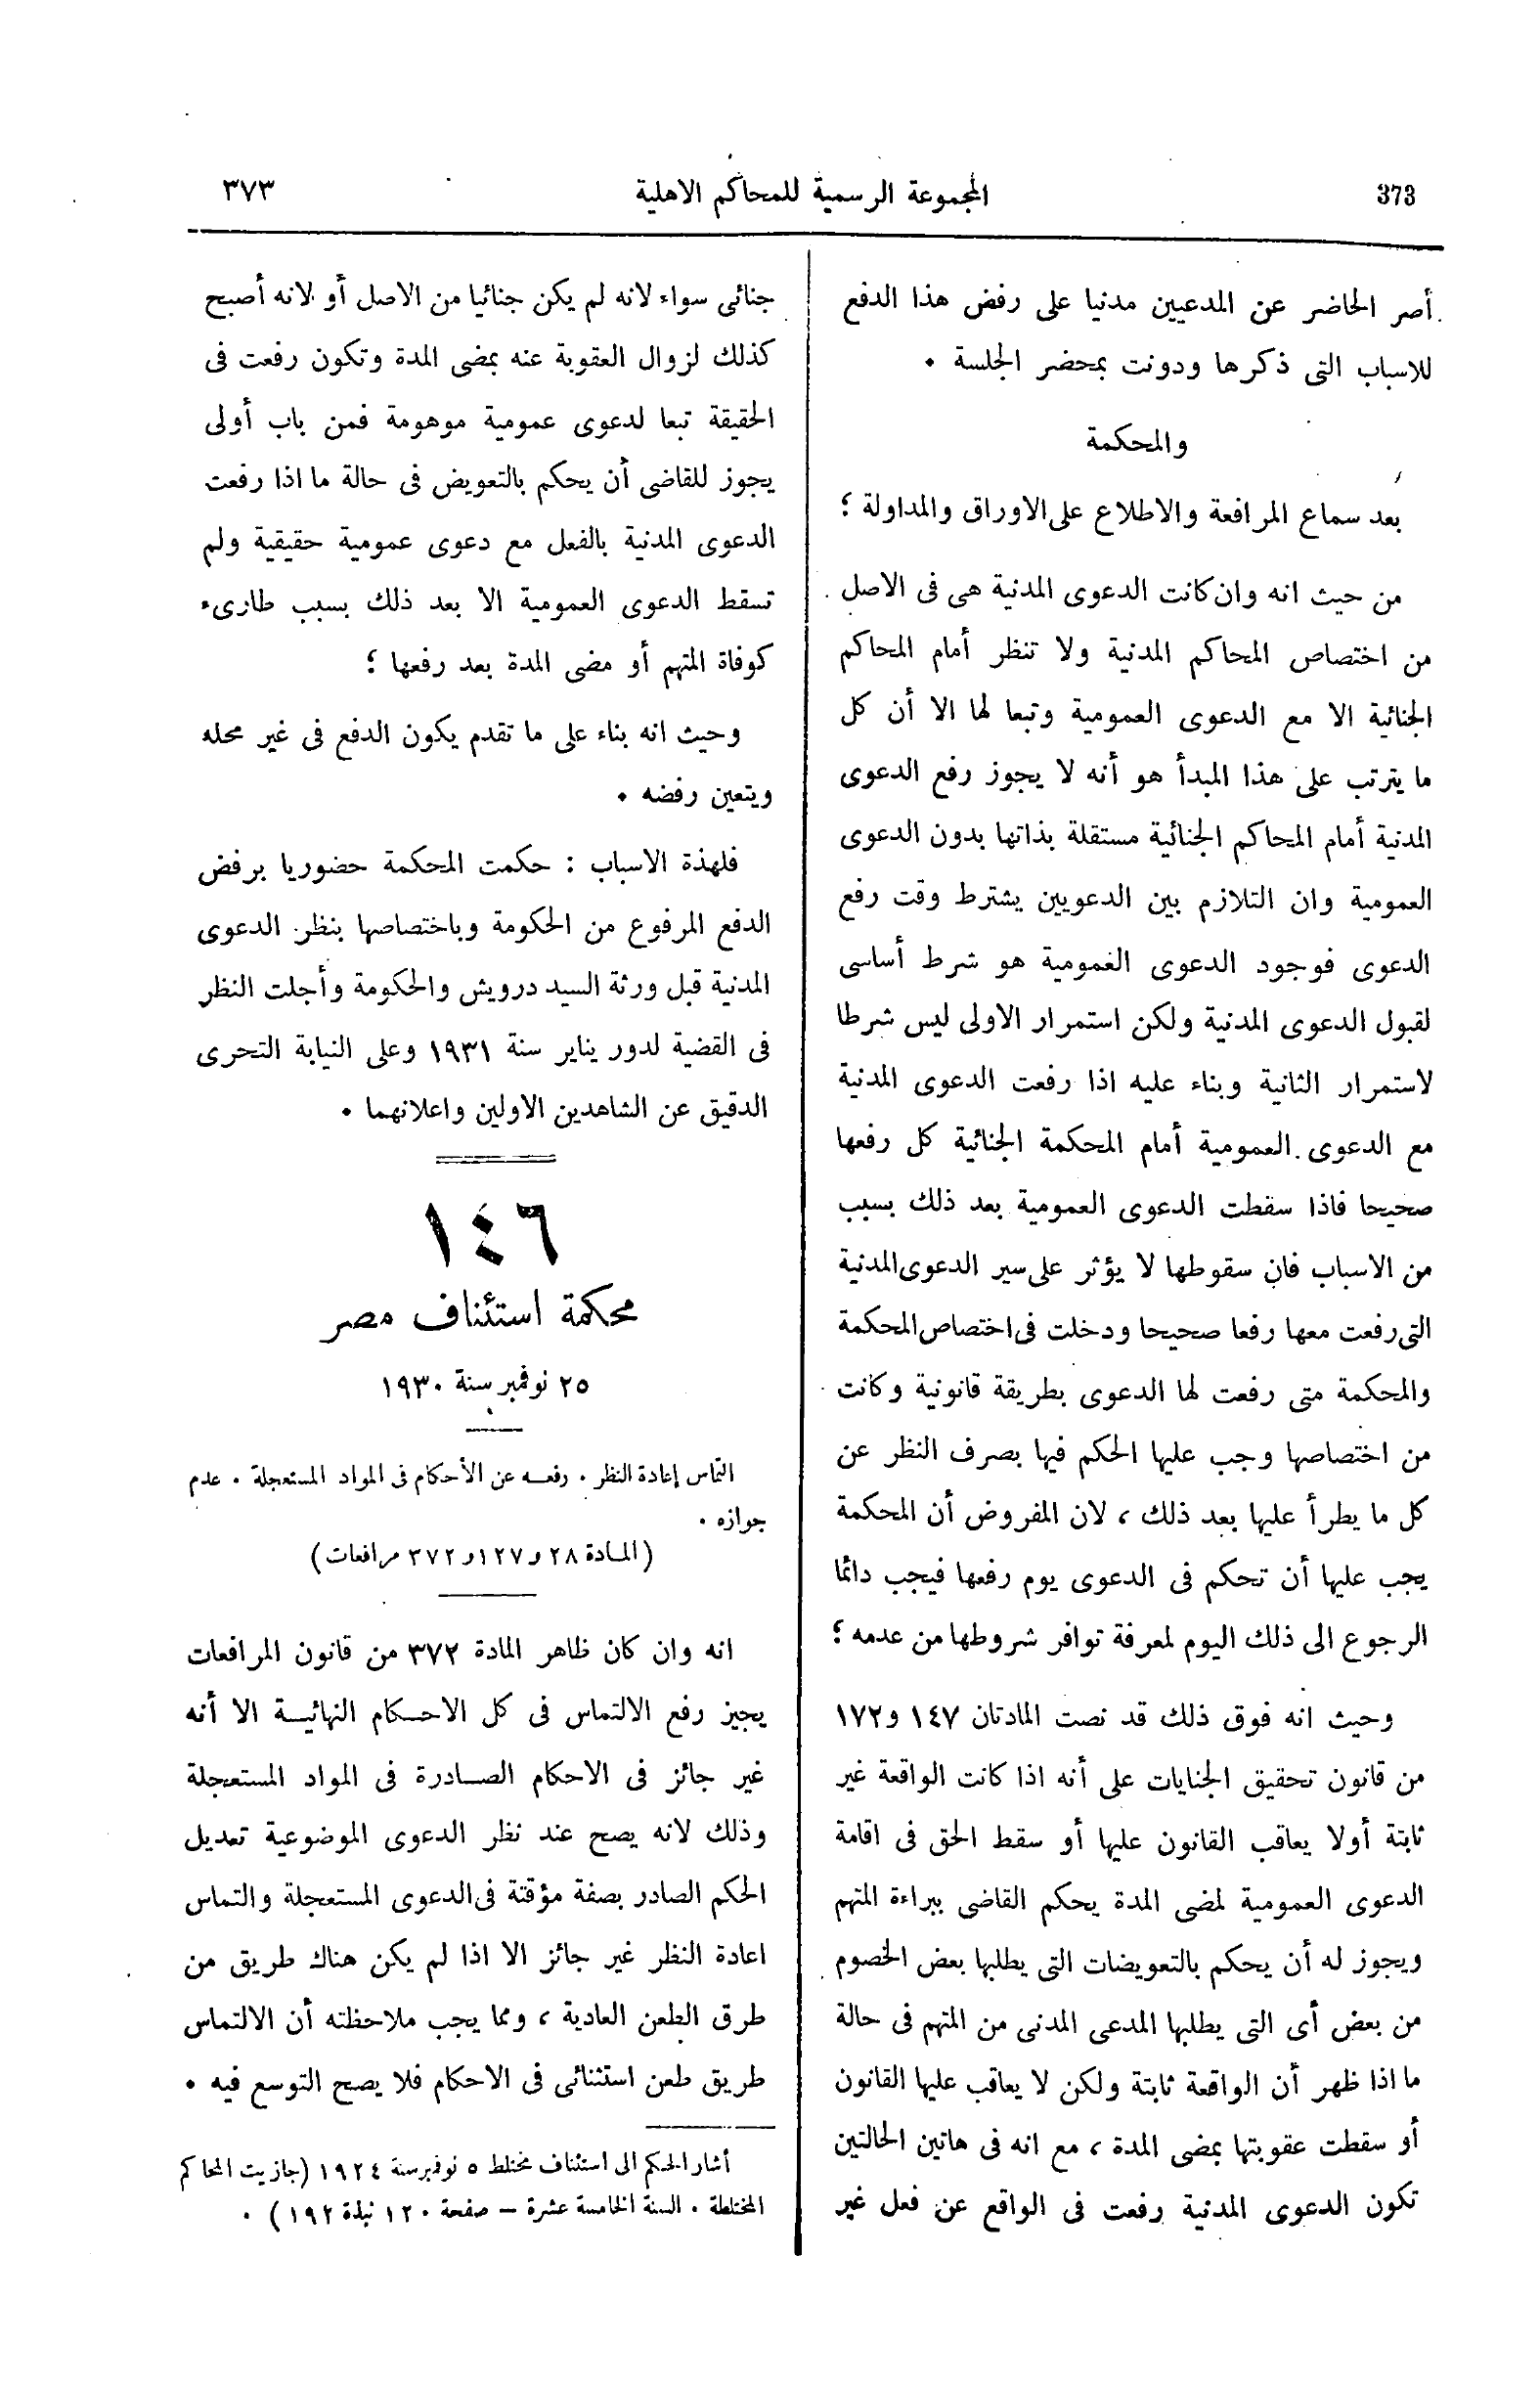 373
المجموعة الرسمية للمحاكم الاهلية
٣٧٣
أصر الحاضر عن المدعيين مدنيا على رفض هذا الدفع
للاسباب التى ذكرها ودونت بمحضر الجلسة .
والمحكمة
بعد سماع المرافعة والاطلاع على الاوراق والمداولة ؛
من حيث انه وان كانت الدعوى المدنية هى فى الاصل
من اختصاص المحاكم المدنية ولا تنظر أمام المحاكم
الجنائية الا مع الدعوى العمومية وتبعا لها الا أن كل
ما يترتب على هذا المبدأ هو أنه لا يجوز رفع الدعوى
المدنية أمام المحاكم الجنائية مستقلة بذاتها بدون الدعوى
العمومية وان التلازم بين الدعويين يشترط وقت رفع
الدعوى فوجود الدعوى العمومية هو شرط أساسى
لقبول الدعوى المدنية ولكن استمرار الاولى ليس شرطا
لاستمرار الثانية وبناء عليه اذا رفعت الدعوى المدنية
مع الدعوى العمومية أمام المحكمة الجنائية كل رفعها
صحيحا فاذا سقطت الدعوى العمومية بعد ذلك بسبب
من الاسباب فان سقوطها لا يؤثر على سير الدعوى المدنية
التى رفعت معها رفعا صحيحا ودخلت فى اختصاص المحكمة
والمحكمة متى رفعت لها الدعوى بطريقة قانونية وكانت
من اختصاصها وجب عليها الحكم فيها بصرف النظر عن
كل ما يطرأ عليها بعد ذلك ، لان المفروض أن المحكمة
يجب عليها أن تحكم فى الدعوى يوم رفعها فيجب دائما
الرجوع الى ذلك اليوم لمعرفة توافر شروطها من عدمه ؛
وحيث انه فوق ذلك قد نصت المادتان ١٤٧ و١٧٢
من قانون تحقيق الجنايات على أنه اذا كانت الواقعة غير
ثابتة أولا يعاقب القانون عليها أو سقط الحق فى اقامة
الدعوى العمومية لمضى المدة يحكم القاضى ببراءة المتهم
ويجوز له أن يحكم بالتعويضات التى يطلبها بعض الخصوم
من بعض أى التى يطلبها المدعى المدنى من المتهم فى حالة
ما اذا ظهر أن الواقعة ثابتة ولكن لا يعاقب عليها القانون
أو سقطت عقوبتها بمضى المدة ، مع انه فى هاتين الحالتين
تكون الدعوى المدنية رفعت فى الواقع عن فعل غير
جنائى سواء لانه لم يكن جنائيا من الاصل أو لانه أصبح
كذلك لزوال العقوبة عنه بمضى المدة وتكون رفعت فى
الحقيقة تبعا لدعوى عمومية موهومة فمن باب أولى
يجوز للقاضى أن يحكم بالتعويض فى حالة ما اذا رفعت
الدعوى المدنية بالفعل مع دعوى عمومية حقيقية ولم
تسقط الدعوى العمومية الا بعد ذلك بسبب طارىء
كوفاة المتهم أو مضى المدة بعد رفعها ؛
وحيث انه بناء على ما تقدم يكون الدفع فى غير محله
ويتعين رفضه .
فلهذة الاسباب : حكمت المحكمة حضوريا برفض
الدفع المرفوع من الحكومة وباختصاصها بنظر الدعوى
المدنية قبل ورثة السيد درويش والحكومة وأجلت النظر
فى القضية لدور يناير سنة ١٩٣١ وعلى النيابة التحرى
الدقيق عن الشاهدين الاولين واعلانهما .
١٤٦
محكمة استئناف مصر
٢٥ نوفمبر سنة ١٩٣٠
التماس إعادة النظر . رفعه عن الأحكام فى المواد المستعجلة . عدم
جوازه .
(المادة ٢٨ و١٢٧ و٣٧٢ مرافعات)
انه وان كان ظاهر المادة ٣٧٢ من قانون المرافعات
يجيز رفع الالتماس فى كل الاحكام النهائية الا أنه
غير جائز فى الاحكام الصادرة فى المواد المستعجلة
وذلك لانه يصح عند نظر الدعوى الموضوعية تعديل
الحكم الصادر بصفة مؤقتة فى الدعوى المستعجلة والتماس
اعادة النظر غير جائز الا اذا لم يكن هناك طريق من
طرق الطعن العادية ، ومما يجب ملاحظته أن الالتماس
طريق طعن استثنائى فى الاحكام فلا يصح التوسع فيه .
أشار الحكم الى استئناف مختلط ٥ نوفمبر سنة ١٩٢٤ (جازيت المحاكم
المختلطة . السنة الخامسة عشرة – صفحة ١٢٠ نبذة ١٩٢) .